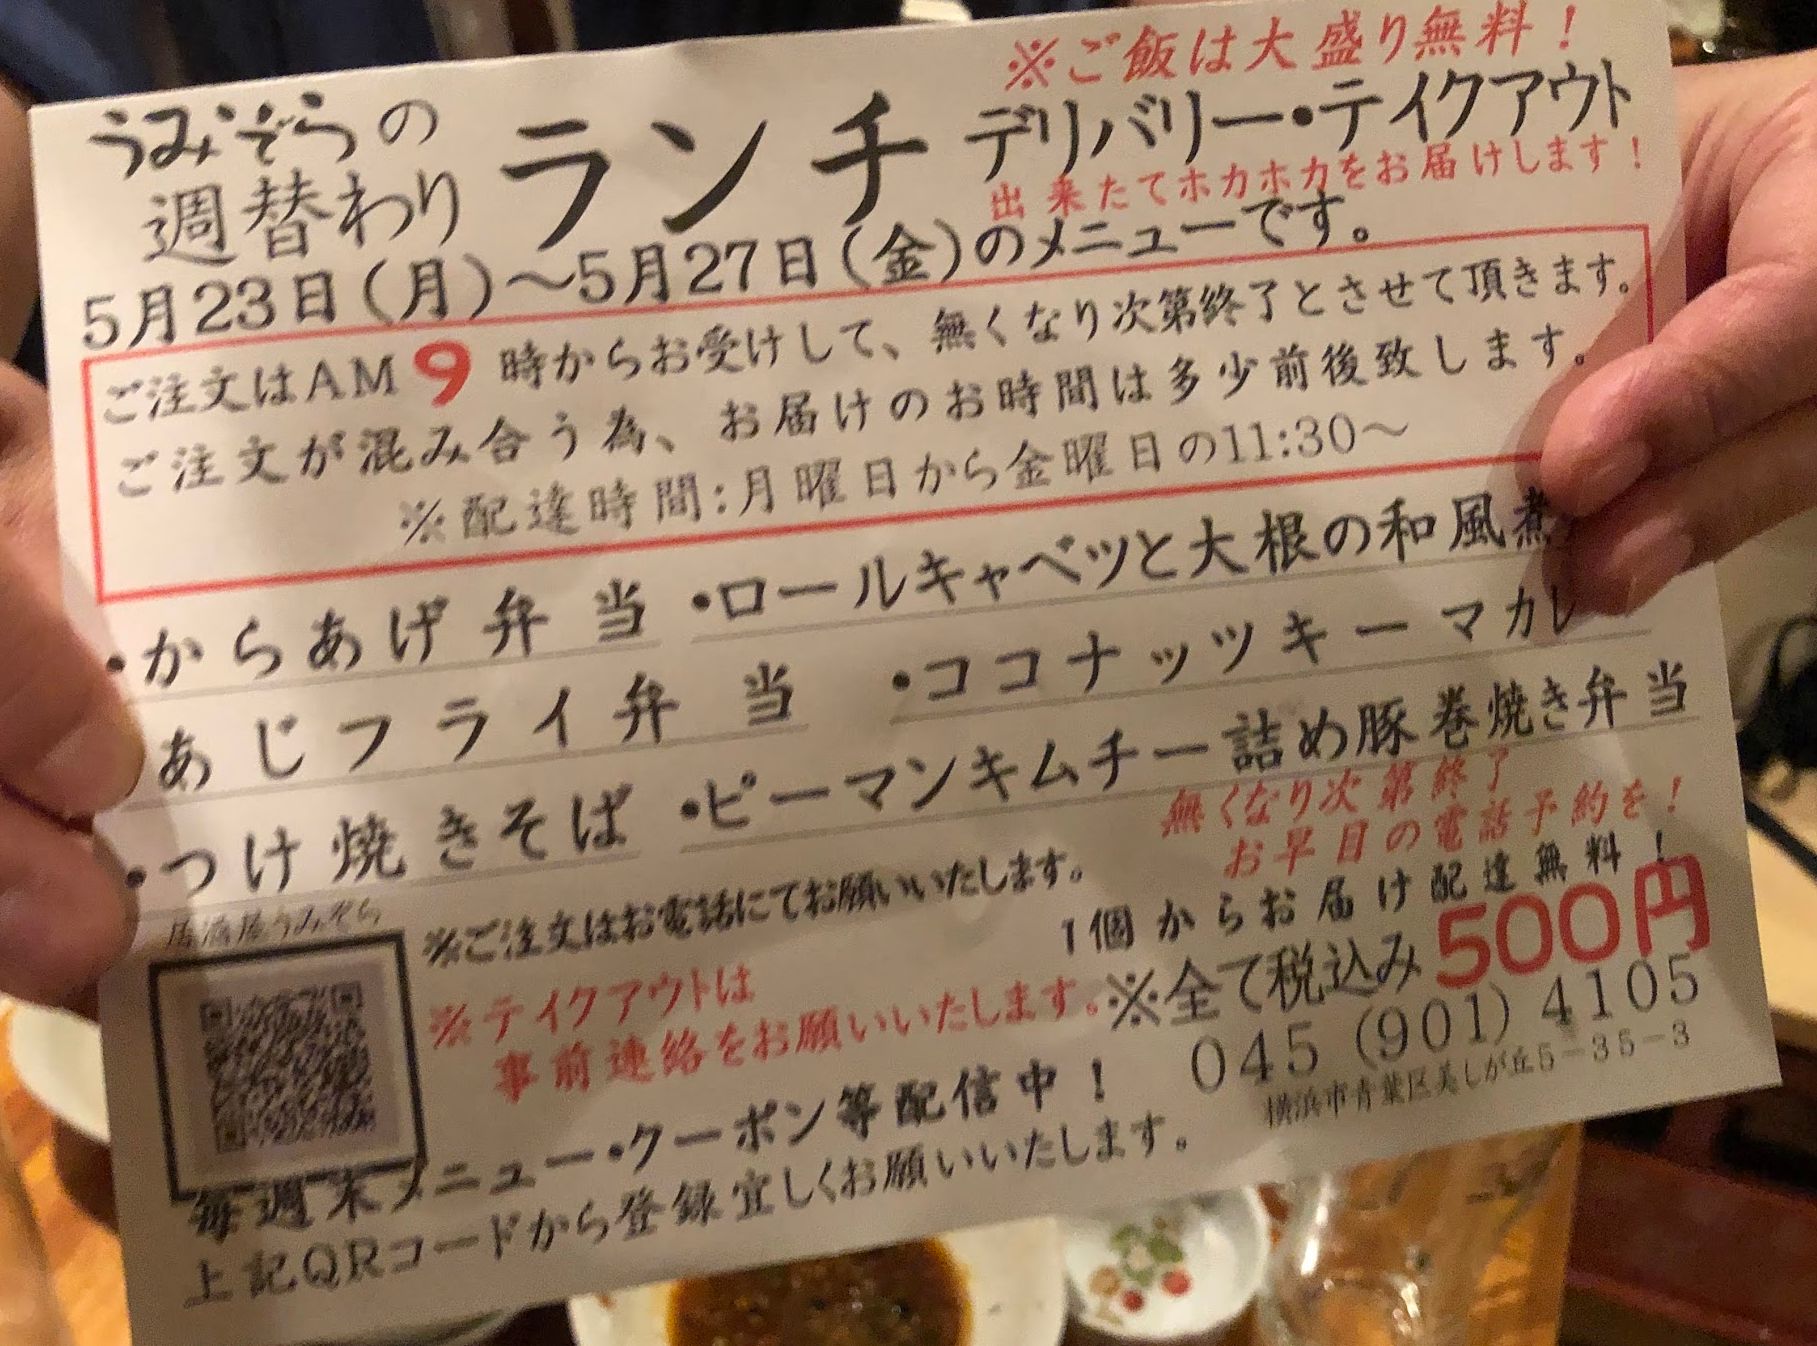 ※ご飯は大盛り無料！
うみぞらの
週替わり
ランチ
デリバリー・テイクアウト
出来たてホカホカをお届けします！
5月23日(月)～5月27日(金)のメニューです。
ご注文はAM9時からお受けして、無くなり次第終了とさせて頂きます。
ご注文が混み合う為、お届けのお時間は多少前後致します。
※配達時間:月曜日から金曜日の11:30～
・からあげ弁当 ・ロールキャベツと大根の和風煮
あじフライ弁当 ・ココナッツキーマカレ
・つけ焼きそば ・ピーマンキムチー詰め豚巻焼き弁当
無くなり次第終了
お早目の電話予約を！
1個からお届け配達無料！
※全て税込み500円
045(901)4105
横浜市青葉区美しが丘5-35-3
居酒屋うみぞら
※ご注文はお電話にてお願いいたします。
※テイクアウトは
事前連絡をお願いいたします。
毎週末メニュー・クーポン等配信中！
上記QRコードから登録宜しくお願いいたします。